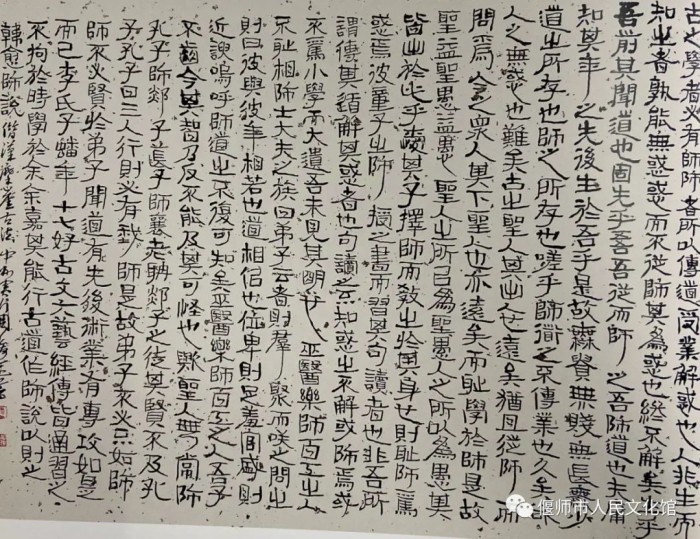 古之學者必有師師者所以傳道受業解惑也人非生而
知之者孰能無惑惑而不從師其為惑也終不解矣生乎
吾前其聞道也固先乎吾吾從而師之吾師道也夫庸
知其年之先後生於吾乎是故無貴無賤無長無少
道之所存也師之所存也嗟乎師道之不傳業也久矣欲
人之無惑也難矣古之聖人其出人也遠矣猶且從師而
問焉今之衆人其下聖人也亦遠矣而恥學於師是故
聖益聖愚益愚聖人之所以為聖愚人之所以為愚其
皆出於此乎愛其子擇師而教之於其身也則恥師焉
惑焉彼童子之師授之書而習其句讀者也非吾所
謂傳其道解其惑者也句讀之不知惑之不解或師焉或
不焉小學而大遺吾未見其明也巫醫樂師百工之人
不恥相師士大夫之族曰弟子云者則羣聚而笑之問之
則曰彼與彼年相若也道相似也位卑則足羞官盛則
近諛嗚呼師道之不復可知矣巫醫樂師百工之人君子
不齒今其智乃反不能及其可怪也歟聖人無常師
孔子師郯子萇弘師襄老聃郯子之徒其賢不及孔
子孔子曰三人行則必有我師是故弟子不必不如師
師不必賢於弟子聞道有先後術業有專攻如是
而已李氏子蟠年十七好古文六藝經傳皆通習之
不拘於時學於余余嘉其能行古道作師說以貽之
韓愈師說
偃师市人民文化馆